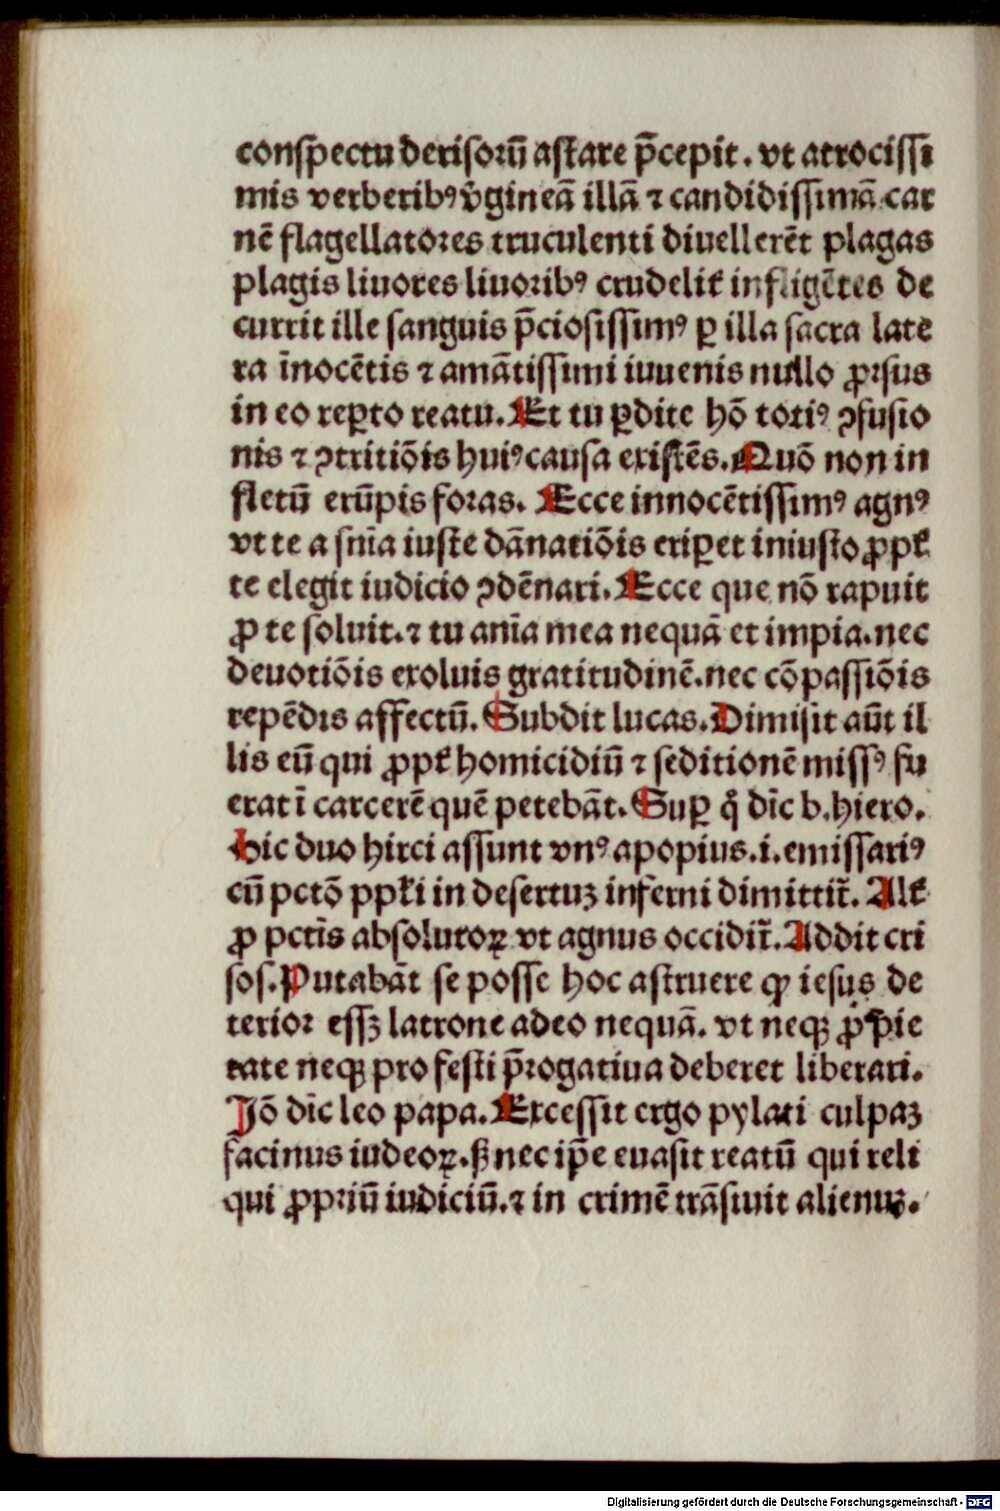 conspectu derisoꝝū astare p̄cepit. vt atrocissi
mis verberibꝰ v̓gineā illā ⁊ candidissimā car
nē flagellatoꝛes truculenti diuellerēt plagas
plagis liuores liuoꝛibꝰ crudelit̉ infligētes de
currit ille sanguis p̄ciosissimꝰ ꝑ illa sacra late
ra īnocētis ⁊ amātissimi iuuenis nullo ꝓꝛsus
in eo reꝑto reatu. Et tu ꝑdite hō totiꝰ ꝯfusio
nis ⁊ ꝯtritiōis huiꝰ causa existēs. Quō non in
fletū erūpis foꝛas. Ecce innocētissimꝰ agnꝰ
vt te a sn̄ia iuste dānatiōis eriꝑet iniusto ꝓpt̉
te elegit iudicio ꝯdēnari. Ecce que nō rapuit
ꝓ te soluit. ⁊ tu aīa mea nequā et impia. nec
deuotiōis exoluis gratitudinē. nec cōpassiōis
repēdis affectū. Subdit lucas. Dimisit aūt il
lis eū qui ꝓpt̉ homicidiū ⁊ seditionē missꝰ fu
erat ī carcerē quē petebāt. Suꝑ q̊ dīc b. hiero.
Hic duo hirci assunt vnꝰ apopius .i. emissariꝰ
cū pctō ppl̉i in desertuꝫ inferni dimittit̄. Alt̉
ꝓ pct̄is absolutoꝝ vt agnus occidit̄. Addit cri
sos. Putabāt se posse hoc astruere ꝙ iesus de
terioꝛ essꝫ latrone adeo nequā. vt neqꝫ ꝓ pie
tate neqꝫ pro festi p̄rogatiua deberet liberari.
Jō dīc leo papa. Excessit ergo pylati culpaꝫ
facinus iudeoꝝ. ꝭ nec ip̄e euasit reatū qui reli
qui ꝓpꝛiū iudiciū. ⁊ in crimē trāsiuit alienuꝫ.
Digitalisierung gefördert durch die Deutsche Forschungsgemeinschaft - DFG